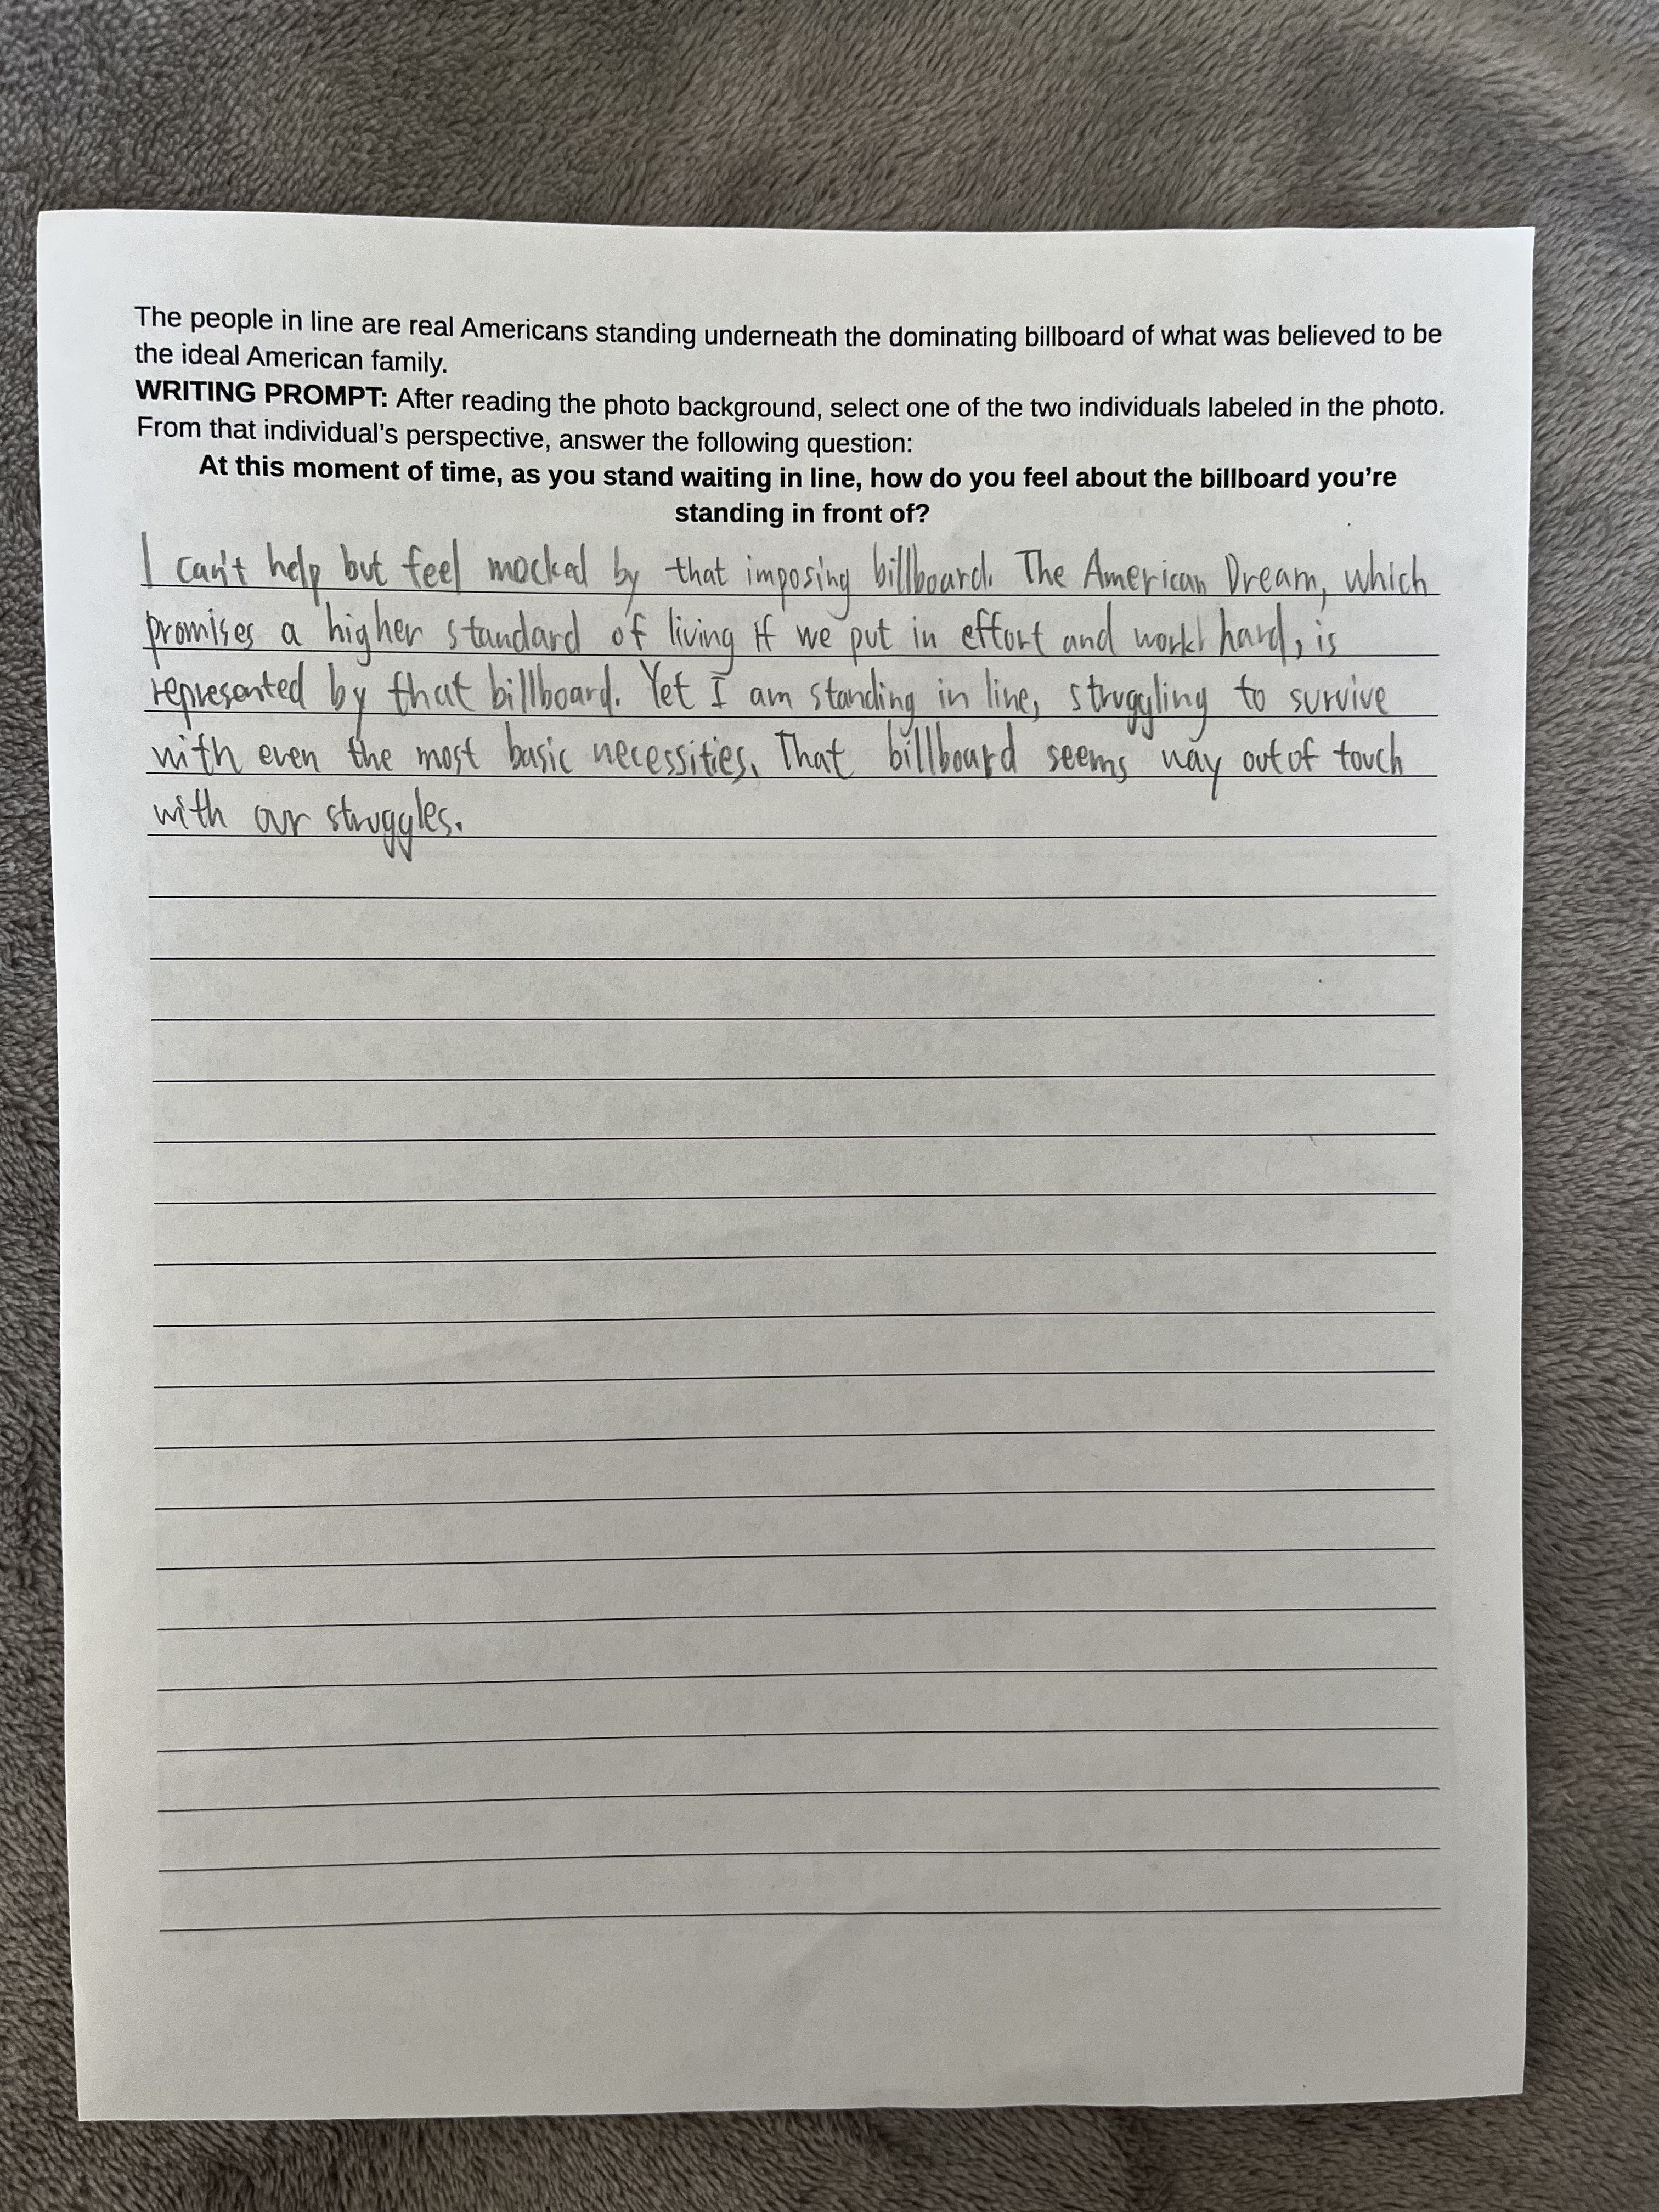 The people in line are real Americans standing underneath the dominating billboard of what was believed to be
the ideal American family.
WRITING PROMPT: After reading the photo background, select one of the two individuals labeled in the photo.
From that individual's perspective, answer the following question:
At this moment of time, as you stand waiting in line, how do you feel about the billboard you're
standing in front of?
I can't help but feel mocked by that imposing billboard. The American Dream, which
promises a higher standard of living if we put in effort and work hard, is
represented by that billboard. Yet I am standing in line, struggling to survive
with even the most basic necessities. That billboard seems way out of touch
with our struggles.